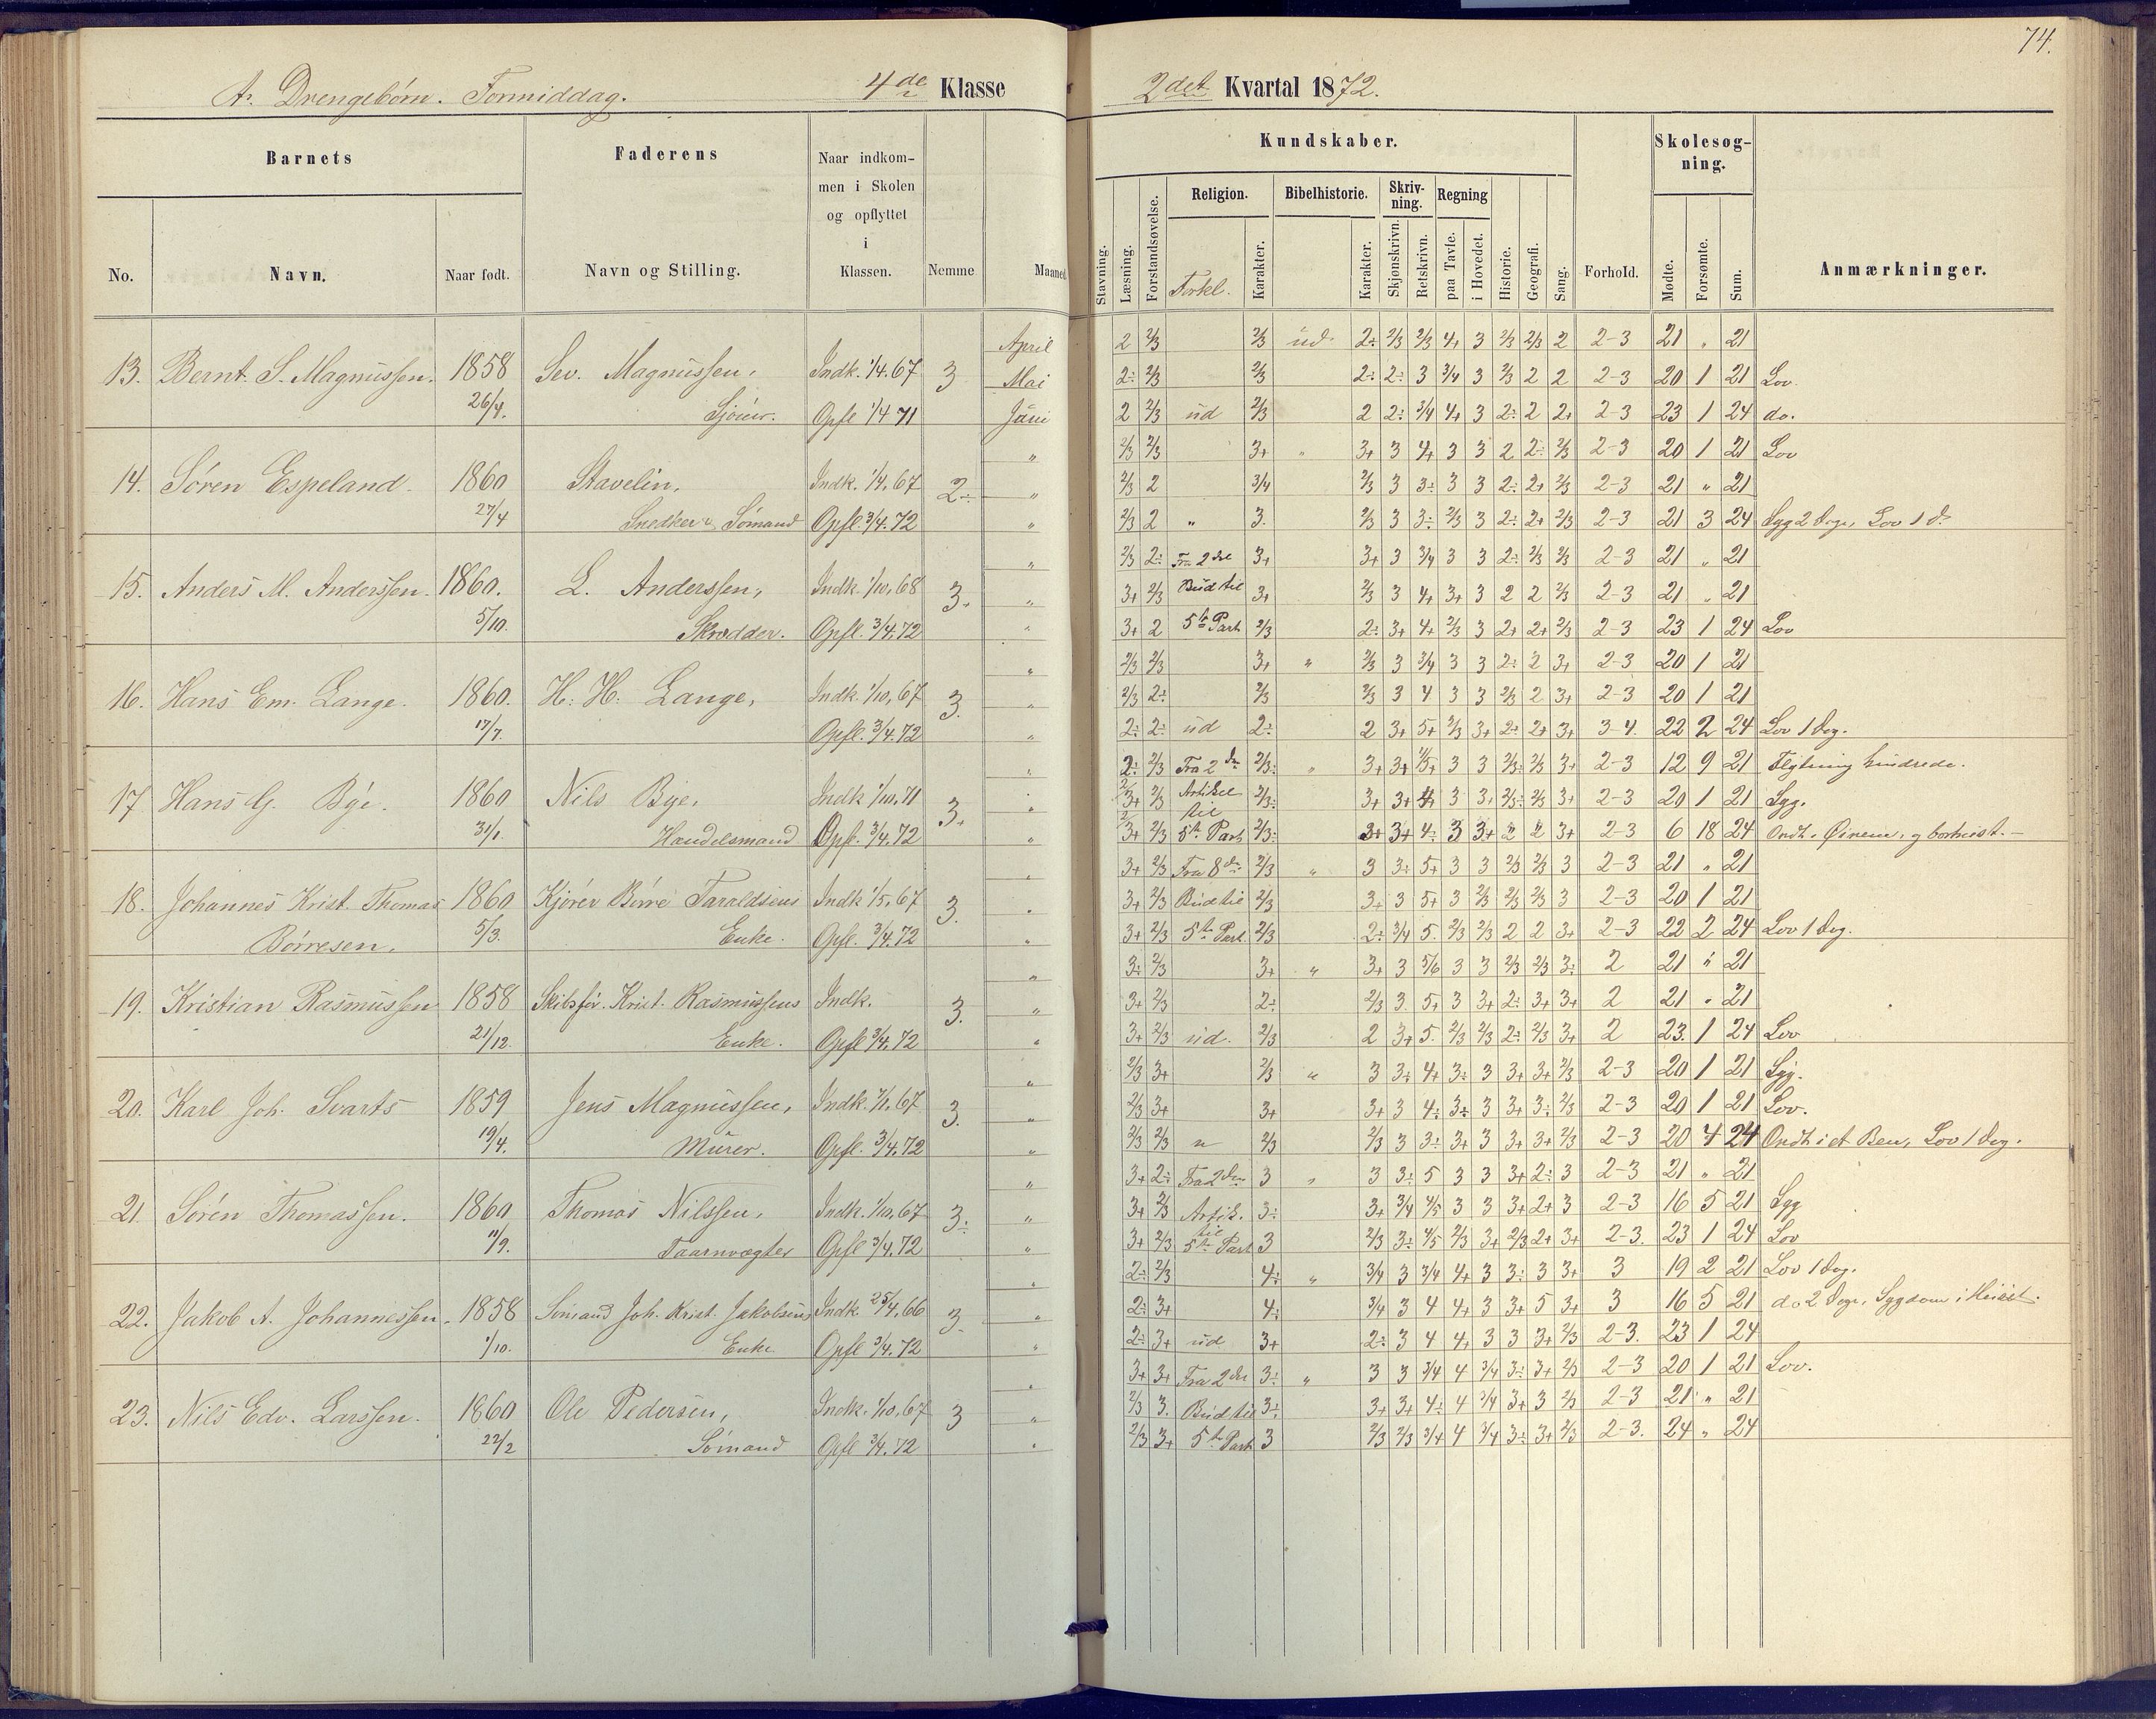 74.
A. Drengebørn. Formiddag. 4de Klasse 2det Kvartal 1872.
Barnets Faderens Naar indkommen i Skolen og opflyttet i Klassen. Nemme Maaned
No. Navn. Naar født. Navn og Stilling.
Kundskaber. Forhold. Skolesøgning. Anmærkninger.
Stavning. Læsning. Forstandsøvelse. Religion. Forkl. Karakter. Bibelhistorie. Karakter. Skrivning. Skjønskrivn. Retskrivn. Regning paa Tavle. i Hovedet. Historie. Geografi. Sang. Mødte. Forsømte. Sum.
April 2 2/3 2/3 ud 2÷ 2/3 2/3 4+ 3 2/3 2/3 2 2-3 21 " 21
13. Bernt. S. Magnussen. 1858 Sev. Magnussen, Indk. 1/4.67 3 Mai 2÷ 2/3 2/3 2÷ 2÷ 3 3/4 3 2/3 2 2 2-3 20 1 21 Lov.
26/4. Sjouer. Opfl 1/4 71 Juni 2 2/3 ud 2/3 2 2÷ 3/4 4+ 3 2÷ 2 2+ 2-3 23 1 24 do.
" 2/3 2/3 3+ " 3+ 3 4+ 3 3 2 2÷ 2/3 2-3 20 1 21 Lov
14. Søren Espeland. 1860 Stavelin, Indk. 1/4.67 2÷ " 2/3 2 3/4 2/3 3 3÷ 3 3 2÷ 2+ 2/3 2-3 21 " 21
27/4 Snedker & Sømand Opfl. 3/4.72 " 2/3 2 " 3. 2/3 3 3÷ 2/3 3 2÷ 2+ 2/3 2-3 21 3 24 Syg 2 Dage, Lov 1 d.
" 2/3 2÷ Fra 2det 3+ 3+ 3 3/4 3 3 2÷ 2/3 2/3 2-3 21 " 21
15. Anders M. Anderssen. 1860. L. Anderssen, Indk 1/10.68 3. " 3+ 2/3 Bud til 3+ 2/3 3 4+ 3+ 3 2 2 2/3 2-3 21 " 21
5/10. Skrædder. Opfl. 3/4.72 " 3+ 2 5te Part 2/3 2÷ 3+ 4+ 2/3 3 2+ 2+ 2/3 2-3 23 1 24 Lov
" 2/3 2/3 3+ " 2/3 3 3/4 3 3 2÷ 2 3+ 2-3 20 1 21
16. Hans Em. Lange. 1860. H. H. Lange, Indk. 1/10.67 3. " 2/3 2÷ 2/3 2/3 3 4 3 3 2/3 2 3+ 2-3 20 1 21
17/7. Opfl. 3/4.72 " 2÷ 2÷ ud 2÷ 2 3+ 5+ 2/3 3+ 2÷ 2+ 3+ 3-4. 22 2 24 Lov 1 Dag.
" 2÷ 2/3 Fra 2den 2/3÷ " 3+ 3+ 4/5+ 3 3 2/3÷ 2/3 3+ 2-3 12 9 21 Flytning hindrede.
17 Hans G. Bye. 1860 Nils Bye, Indk 1/10.71 3+ " 3+ 2/3 Artikel til 2/3÷ 3+ 3+ 4+ 3 3+ 2/3÷ 2/3 3+ 2-3 20 1 21 Syg.
31/1. Handelsmand Opfl. 3/4.72 " 3+ 2/3 5te Part 2/3÷ 3+ 3+ 4÷ 3 3+ 2 2 3+ 2-3 6 18 24 Ondt i Øinene, og bortreist.
" 3+ 2/3 Fra 8de 2/3 " 3 3÷ 5+ 3 3 2/3 2/3 3 2-3 21 " 21
18. Johannes Krist. Thomas 1860 Kjører Børre Taraldsens Indk 1/5.67 3. " 3+ 2/3 Bud til 2/3 3+ 3 5+ 3 2/3 2/3 2/3 3 2-3 20 1 21
Børresen. 5/3. Enke. Opfl. 3/4.72 " 3+ 2/3 5te Part. 2/3 2÷ 3/4 5. 2/3 2/3 2 2 3+ 2-3 22 2 24 Lov 1 Dag.
" 3÷ 2/3 3+ " 3+ 3 5/6 3 3 2/3 2/3 3÷ 2 21 " 21
19. Kristian Rasmussen 1858 Skibsfør. Krist. Rasmussens Indk. 3. " 3+ 2/3 2÷ 2/3 3. 5+ 3 3+ 2÷ 3+ 3+ 2 21 " 21
21/12. Enke. Opfl 3/4.72 " 3+ 2/3 ud. 2/3 2 3+ 5. 2/3 2/3 2÷ 2/3 3+ 2 23. 1 24 Lov
" 2/3 3+ 2/3 " 3 3÷ 4+ 3÷ 3 3+ 3+ 2/3 2-3 20 1 21 Syg.
20. Karl Joh. Svarts 1859 Jens Magnussen, Indk. 7/1.67 3. " 2/3 3+ 3+ 3+ 3 4÷ 3÷ 3 3+ 3÷ 2/3 2-3 20 1 21 Lov.
19/4. Murer. Opfl. 3/4.72 " 2/3 2/3 " 2/3 2/3 3 3÷ 3+ 3 3+ 3+ 2/3 2-3 20 4 24 Ondt i et Ben, Lov 1 Dag.
" 3+ 2÷ Fra 2den 3 " 3 3÷ 5 3 3 3+ 2÷ 3 2-3 21 " 21
21. Søren Thomassen. 1860 Thomas Nilssen, Indk. 1/10.67 3÷ " 3+ 2/3 Artik. til 3÷ 3+ 3/4 4/5 3 3 3+ 2+ 3 2-3 16 5 21 Syg
11/9. Taarnvægter Opfl 3/4.72 " 3+ 2/3 5te Part 3 2/3 3÷ 4/5 2/3 3+ 2/3 2+ 3+ 2-3. 23 1 24 Lov
" 2÷ 2/3 4÷ " 3/4 3 3/4 4+ 3 3÷ 3 3+ 3 19 2 21 Lov 1 Dag.
22. Jakob A. Johannessen. 1858 Sømand Joh. Krist. Jakobsens Indk. 25/4.66 3. " 2÷ 3+ 4÷ 3/4 3 4 4+ 3 3+ 5 3+ 3 16 5 21 do 2 Dage, Sygdom i Huset.
1/10. Enke Opfl 3/4.72 " 2÷ 3+ ud 3+ 2÷ 3 4 4+ 3 3 3+ 2/3 2-3. 23 1 24
" 3+ 3+ Fra 2det 3÷ " 3 3 3/4 4 3/4 3÷ 3+ 2/3 2-3 20 1 21 Lov.
23. Nils Edv. Larssen. 1860 Ole Pedersen, Indk. 1/10.67 3 " 2/3 3. Bud til 3÷ 3+ 3+ 4÷ 4 3/4 3+ 3 2/3 2-3 21 " 21
22/2 Sømand Opfl 3/4.72 " 2/3 3+ 5te Part 3 2/3 2/3 3/4 4 3/4 3÷ 3+ 2/3 2-3. 24 " 24